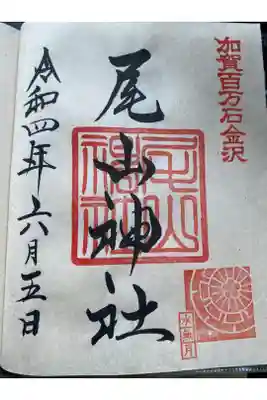 加賀百万石金沢
尾山神社
尾山神社
令和四年六月五日
水無月